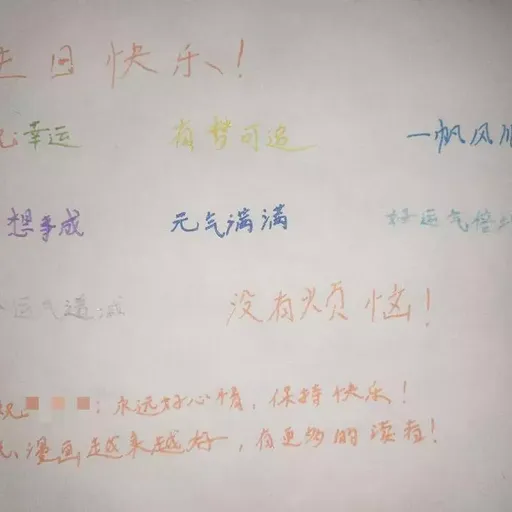 生日快乐!
幸运 有梦可追 一帆风顺
想事成 元气满满 好运气
运气递减 没有烦恼!
祝 : 永远好心情,保持快乐!
漫画越来越好,有更多的读者!